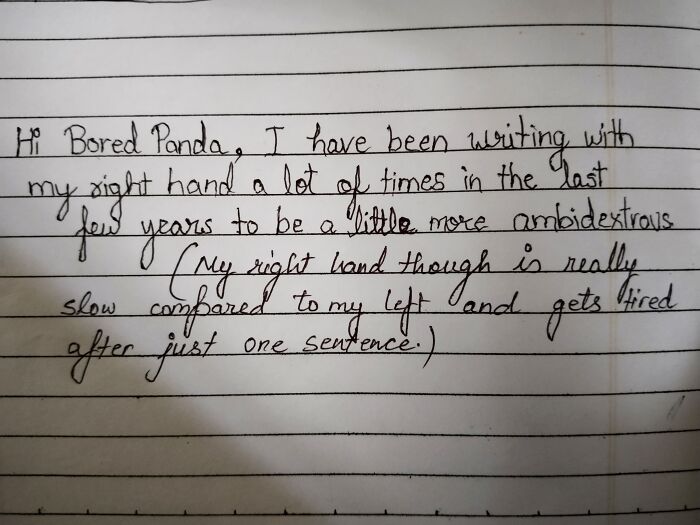 Hi Bored Panda, I have been writing with
my right hand a lot of times in the last
few years to be a little more ambidextrous
(My right hand though is really
slow compared to my left and gets tired
after just one sentence.)